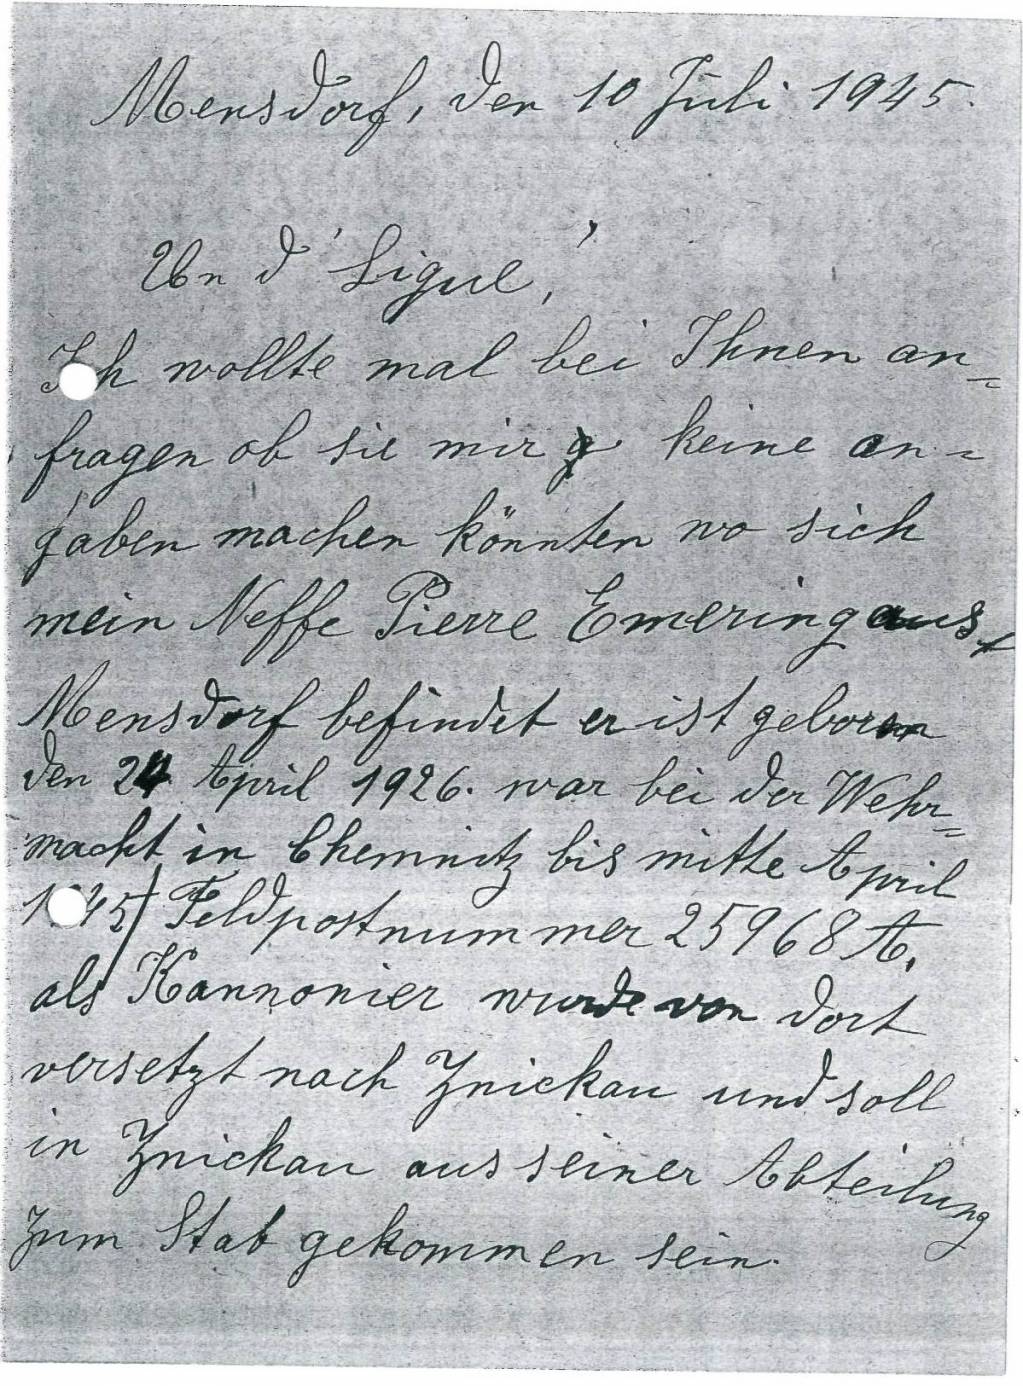 Mensdorf, den 10 Juli 1945.
Un d' Ligue,
Ich wollte mal bei Ihnen an=
fragen ob sie mir keine an=
gaben machen könnten wo sich
mein Neffe Pierre Emering aus
Mensdorf befindet er ist geboren
den 24 April 1926. war bei der Wehr=
macht in Chemnitz bis mitte April
1945 Feldpostnummer 25968 A.
als Kannonier wurde von dort
versetzt nach Znickau und soll
in Znickau aus seiner Abteilung
zum Stab gekommen sein.